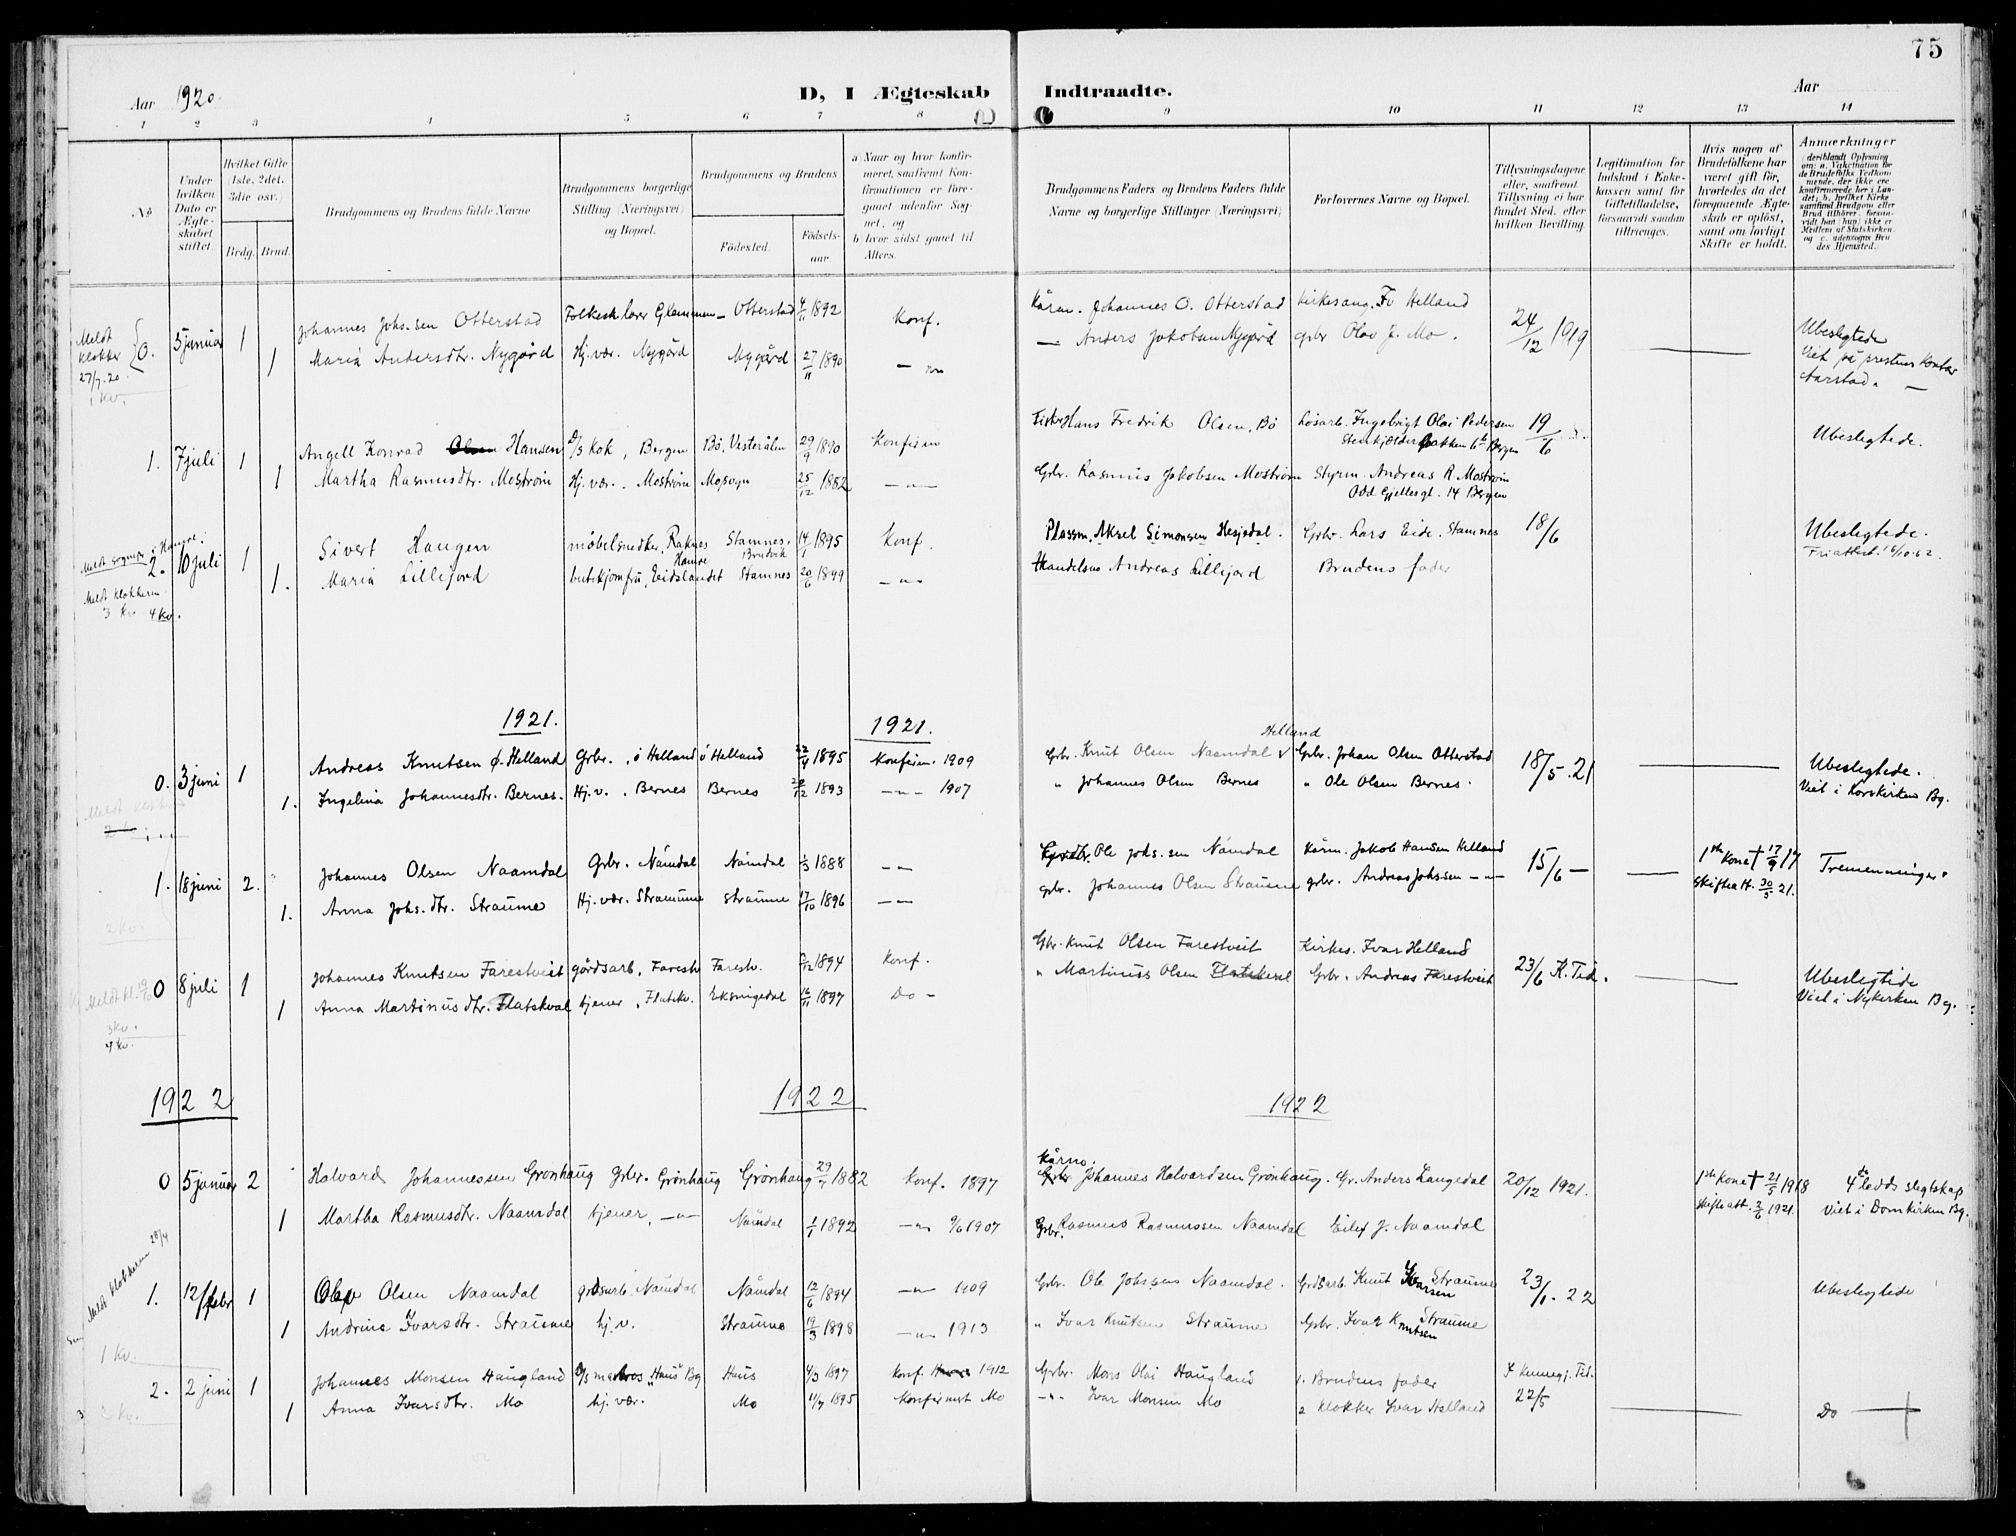 75
Aar 1920.
D, I Ægteskab Indtraadte.
Aar
1 2 3 4 5 6 7 8 9 10 11 12 13 14
No
Under hvilken Dato er Ægteskabet stiftet.
Hvilket Gifte (1ste, 2det, 3die osv.)
Brdg. Brud.
Brudgommens og Brudens fulde Navne
Brudgommens borgerlige Stilling (Næringsvei) og Bopæl.
Brudgommens og Brudens
Fødested.
Fødselsaar.
a) Naar og hvor konfirmeret, saafremt Konfirmationen er foregaaet udenfor Sognet, og
b) hvor sidst gaaet til Alters.
Brudgommens Faders og Brudens Faders fulde Navne og borgerlige Stillinger (Næringsvei)
Forlovernes Navne og Bopæl.
Tillysningsdagene eller, saafremt Tillysning ei har fundet Sted, efter hvilken Bevilling.
Legitimation for Indskud i Enkekassen samt for Giftetilladelse, forsaavidt saadan tiltrænges.
Hvis nogen af Brudefolkene har været gift før, hvorledes da det foregaaende Ægteskab er opløst, samt om lovligt Skifte er holdt.
Anmærkninger
Meldt klokker 27/7.20.
1 kv.
0. 5 januar 1 Johannes Johs.sen Otterstad Folkesk.lærer Glammen Otterstad 4/11 1892 Konf. Kårm. Johannes O. Otterstad Kirkesang. Iv Helland 24/12 1919 Ubeslegtede
1 Maria Andersdtr. Nygård Hj.vær. Nygård Nygård 27/11 1890 — " — Anders Jakobsen Nygård grbr Olav J. Mo. Viet på prestens kontor Aarstad.
1. 7 juli 1 Angell Konrad Olsen Hansen D/S kok, Bergen Bø, Vesterålen 29/9 1890 Konfirm Fisker Hans Fredrik Olsen, Bø Løsarb. Ingebrigt Olai Pedersen 19/6 Ubeslegtede.
Stenkjelderbakken 6b Bergen
1 Martha Rasmusdtr. Mostrøm Hj.vær. Mostrøm Mosogn 25/12 1882 — " — Grbr. Rasmus Jakobsen Mostrøm Styrm. Andreas R. Mostrøm
Odd Gjellesgt. 14 Bergen
2. 10 juli 1 Sivert Haugen møbelsnedker, Raknes Hamre Stamnes, Bruvik 14/1 1895 Konf. Plassm. Aksel Simonsen Hesjedal. Grbr. Lars Eide, Stamnes 18/6 Ubeslegtede.
Meldt klokkeren 3 kv 4 kv.
1. Maria Lillejord butikjomfru, Eidslandet Stamnes 20/6 1899 — " — Handelsm Andreas Lillejord Brudens fader
1921. 1921.
0. 3 juni 1 Andreas Knutsen ø. Helland Grbr. ø Helland ø Helland 1895 Konfirm. 1909 Grbr. Knut Olsen Naamdal v Helland Grbr. Johan Olsen Otterstad 18/5.21 Ubeslegtede.
1. Ingelina Johannesdtr. Bernes. Hj.v. Bernes Bernes 1893 — " — 1907 " Johannes Olsen Bernes " Ole Olsen Bernes. Viet i Korskirken Bg.
1. 18 juni 2. Johannes Olsen Naamdal Grbr. Nåmdal Nåmdal 1/3 1888 — " — Ole Johs.sen Nåmdal Kårm. Jakob Hansen Helland 15/6 — 1ste kone † 17/9 17 Tremenninger
2 kv.
1. Anna Johs.dtr. Straume Hj.vær. Straumme Straume 17/10 1896 — " — grbr. Johannes Olsen Straume grbr. Andreas Johssen — " — Skifteatt. 30/5 21.
0 8 juli 1 Johannes Knutsen Farestveit gårdsarb. Farestv Farestv. 1894 Konf. Gbr. Knut Olsen Farestveit Kirkes. Ivar Helland 23/6 K. Tid. Ubeslegtede
3 kv.
4 kv.
1 Anna Martinusdtr. Flatekval tjener, Flatekv. Eksingedal 16/11 1897 Do — " Martinus Olsen Flatekval Grbr. Andreas Farestveit Viet i Nykirken Bg.
1922 1922 1922
0 5 januar 2 Halvard Johannessen Grønhaug Grbr. Grønhaug Grønhaug 29/7 1882 Konf. 1897 Kårm. Johannes Halvardsen Grønhaug. Gr. Anders Langedal 20/12 1921. 1ste kone † 21/5 1918 4de ledds slegtskap
1 Martha Rasmusdtr. Naamdal tjener, — " — Nåmdal 1/1 1892 — " — 9/6 1907 Grbr. Rasmus Rasmussen Naamdal Eilef J. Naamdal Skifteatt. 2/6 1921. Viet i Domkirken Bg.
Meldt klokkeren 28/4
1. 12/febr 1 Olav Olsen Naamdal grdsarb. Nåmdal Nåmdal 12/6 1894 — " — 1909 Grbr. Ole Johssens Naamdal. Grdsarb. Knut Ivarsen Straume 23/1. 22 Ubeslegtede
1 Andrine Ivarsdtr. Straume hj.v. Straume 19/3 1898 — " — 1913 " Ivar Knutsen Straume Grbr. Ivar Knutsen Straume
1 kv.
2. 2 juni 1 Johannes Monsen Haugland D/S matros "Haus" Bg Haus 4/3 1897 Konf. Haus 1912 Grbr. Mons Olai Haugland 1. Brudens fader
1 Anna Ivarsdtr. Mo hj.vær. Mo 11/7 1895 Konfirmert Mo — " — Ivar Monsen Mo 2 Klokker Ivar Helland 22/5 Do